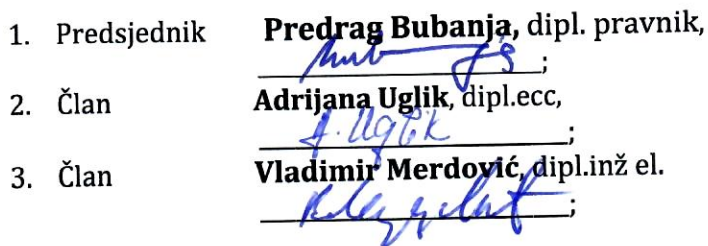 1. Predsjednik Predrag Bubanja, dipl. pravnik,
;
2. Član Adrijana Uglik, dipl.ecc,
A. Uglik ;
3. Član Vladimir Merdović, dipl.inž el.
;